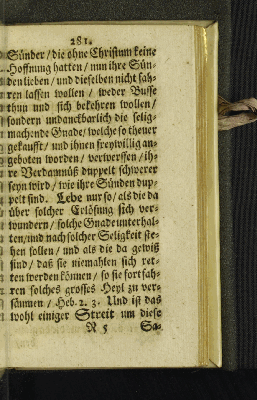 281.
Sünder/ die ohne Christum keine
Hoffnung hatten/ nun ihre Sün-
den lieben/ und dieselben nicht fah-
ren lassen wollen/ weder Busse
thun und sich bekehren wollen/
sondern undanckbarlich die selig-
machende Gnade/ welche so theuer
gekaufft/ und ihnen freywillig an-
geboten worden/ verwerffen/ ih-
re Verdamnüß duppelt schwerer
seyn wird/ wie ihre Sünden dup-
pelt sind. Lebe nur so/ als die da
über solcher Erlösung sich ver-
wundern/ solche Gnade unterhal-
ten/ und nach solcher Seligkeit ste-
hen sollen/ und als die da gewiß
sind/ daß sie niemahlen sich ret-
ten werden können/ so sie fortfah-
ren solches grosses Heyl zu ver-
säumen/ Heb. 2. 3. Und ist das
wohl einiger Streit um diese
R 5 Sa-